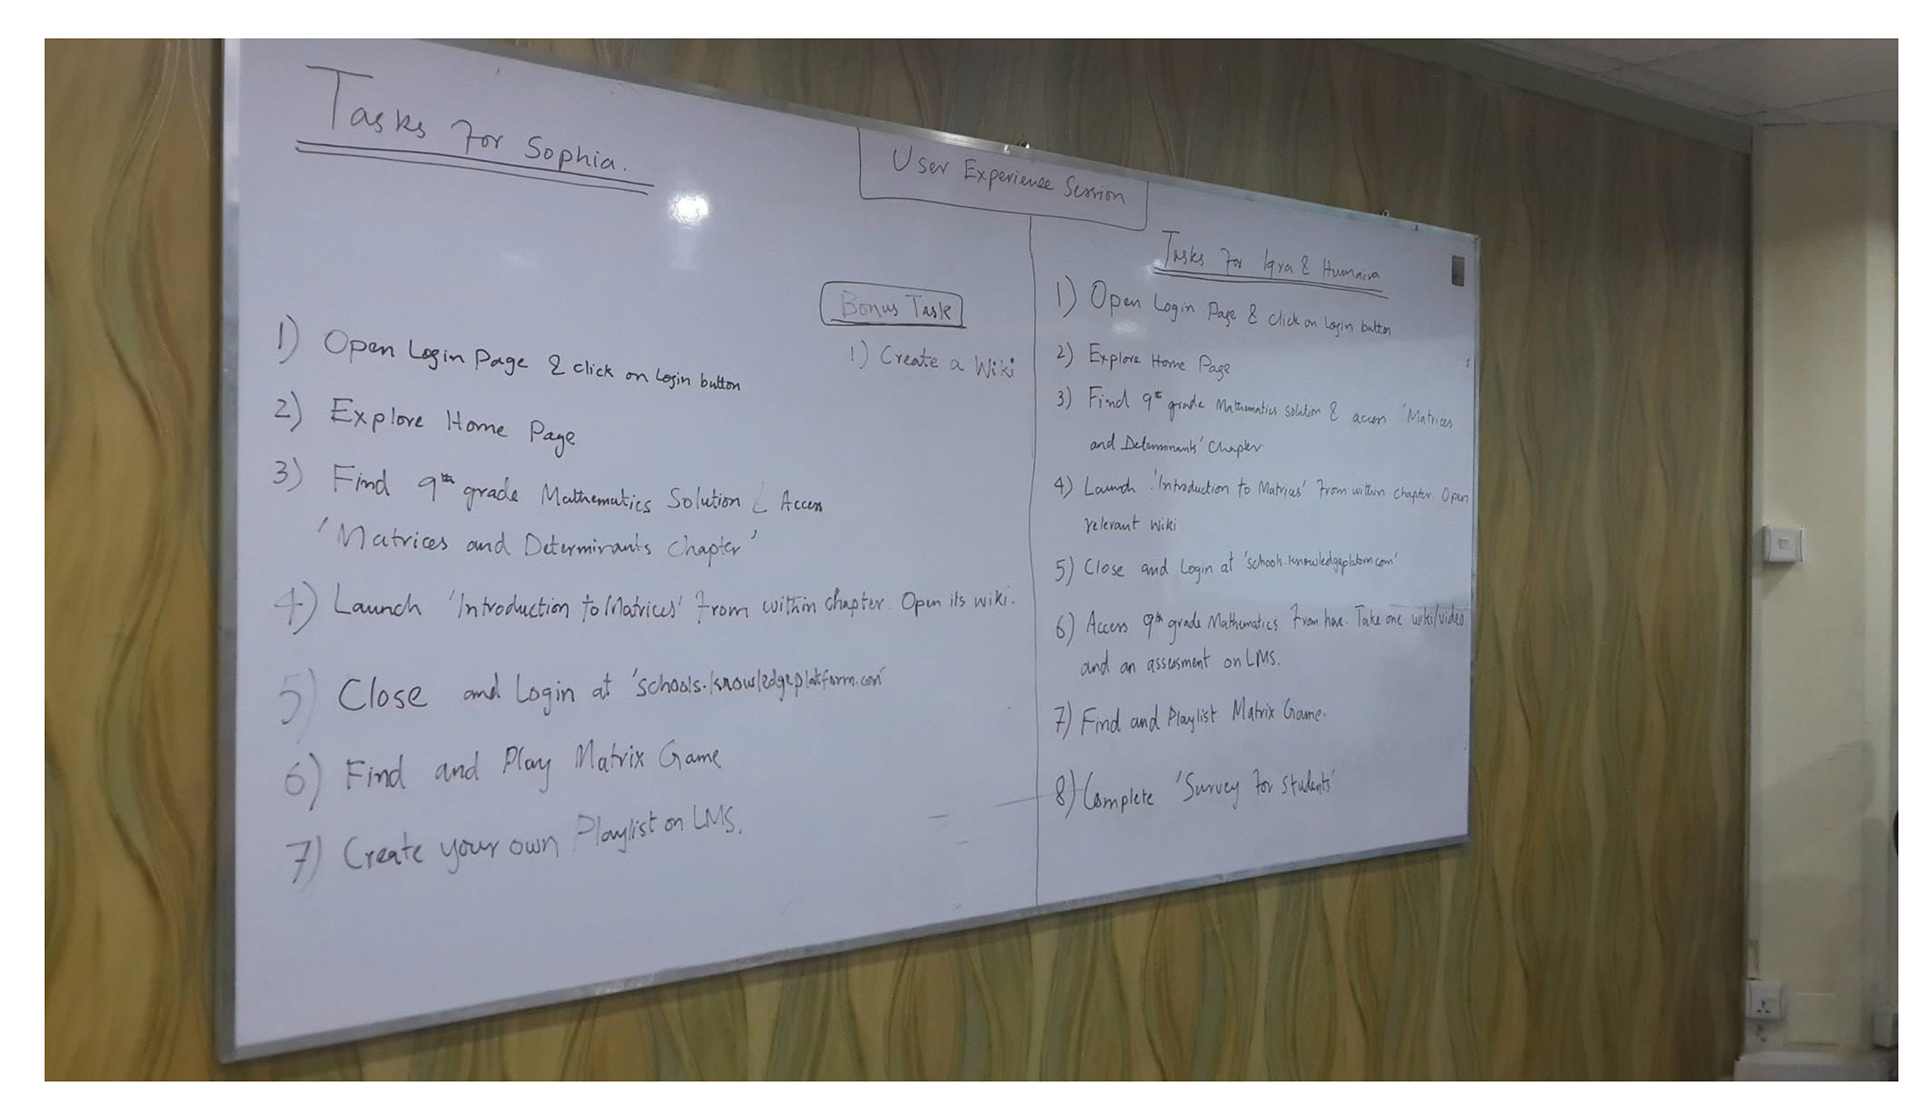 User Experience Session
Tasks For Sophia.
1) Open Login Page & click on Login button
2) Explore Home Page
3) Find 9th grade Mathematics Solution & Access
'Matrices and Determinants Chapter'
4) Launch 'Introduction to Matrices' From within chapter. Open its wiki.
5) Close and Login at 'schools.knowledgeplatform.com'
6) Find and Play Matrix Game
7) Create your own Playlist on LMS.
Bonus Task
1) Create a Wiki
Tasks For Iqra & Humaira
1) Open Login Page & click on Login button
2) Explore Home Page
3) Find 9th grade Mathematics solution & access 'Matrices
and Determinants' Chapter.
4) Launch 'Introduction to Matrices' From within chapter. Open
relevant wiki
5) Close and Login at 'schools.knowledgeplatform.com'
6) Access 9th grade Mathematics From here. Take one wiki/video
and an assessment on LMS.
7) Find and Playlist Matrix Game.
8) Complete 'Survey For Students'